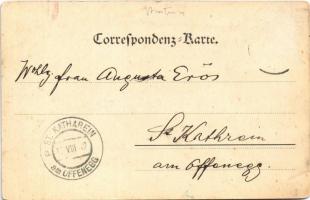 Correspondenz-Karte.
Wohlg. frau Augusta Erös
St Kathrein
am Offenegg.
ST. KATHAREIN
am OFFENEGG
VIII